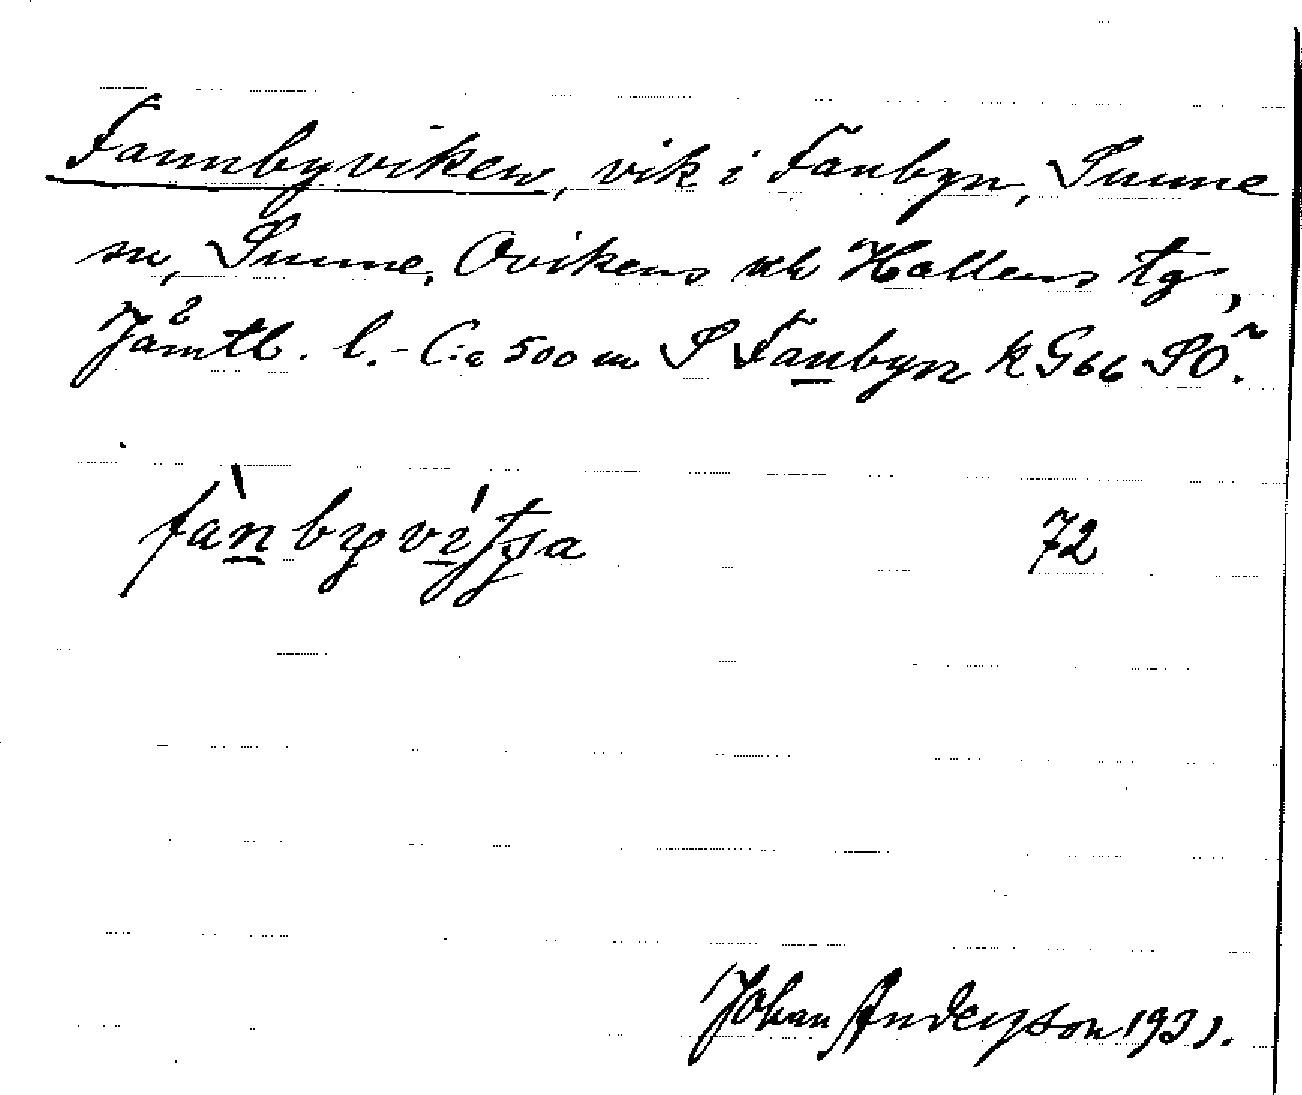 Fannbyviken, vik i Fanbyn, Sunne
sn, Sunne, Ovikens och Hallens tg,
Jämtl. l. - C:a 500 m S Fanbyn k G66 SÖ.
72
Johan Anderson 193